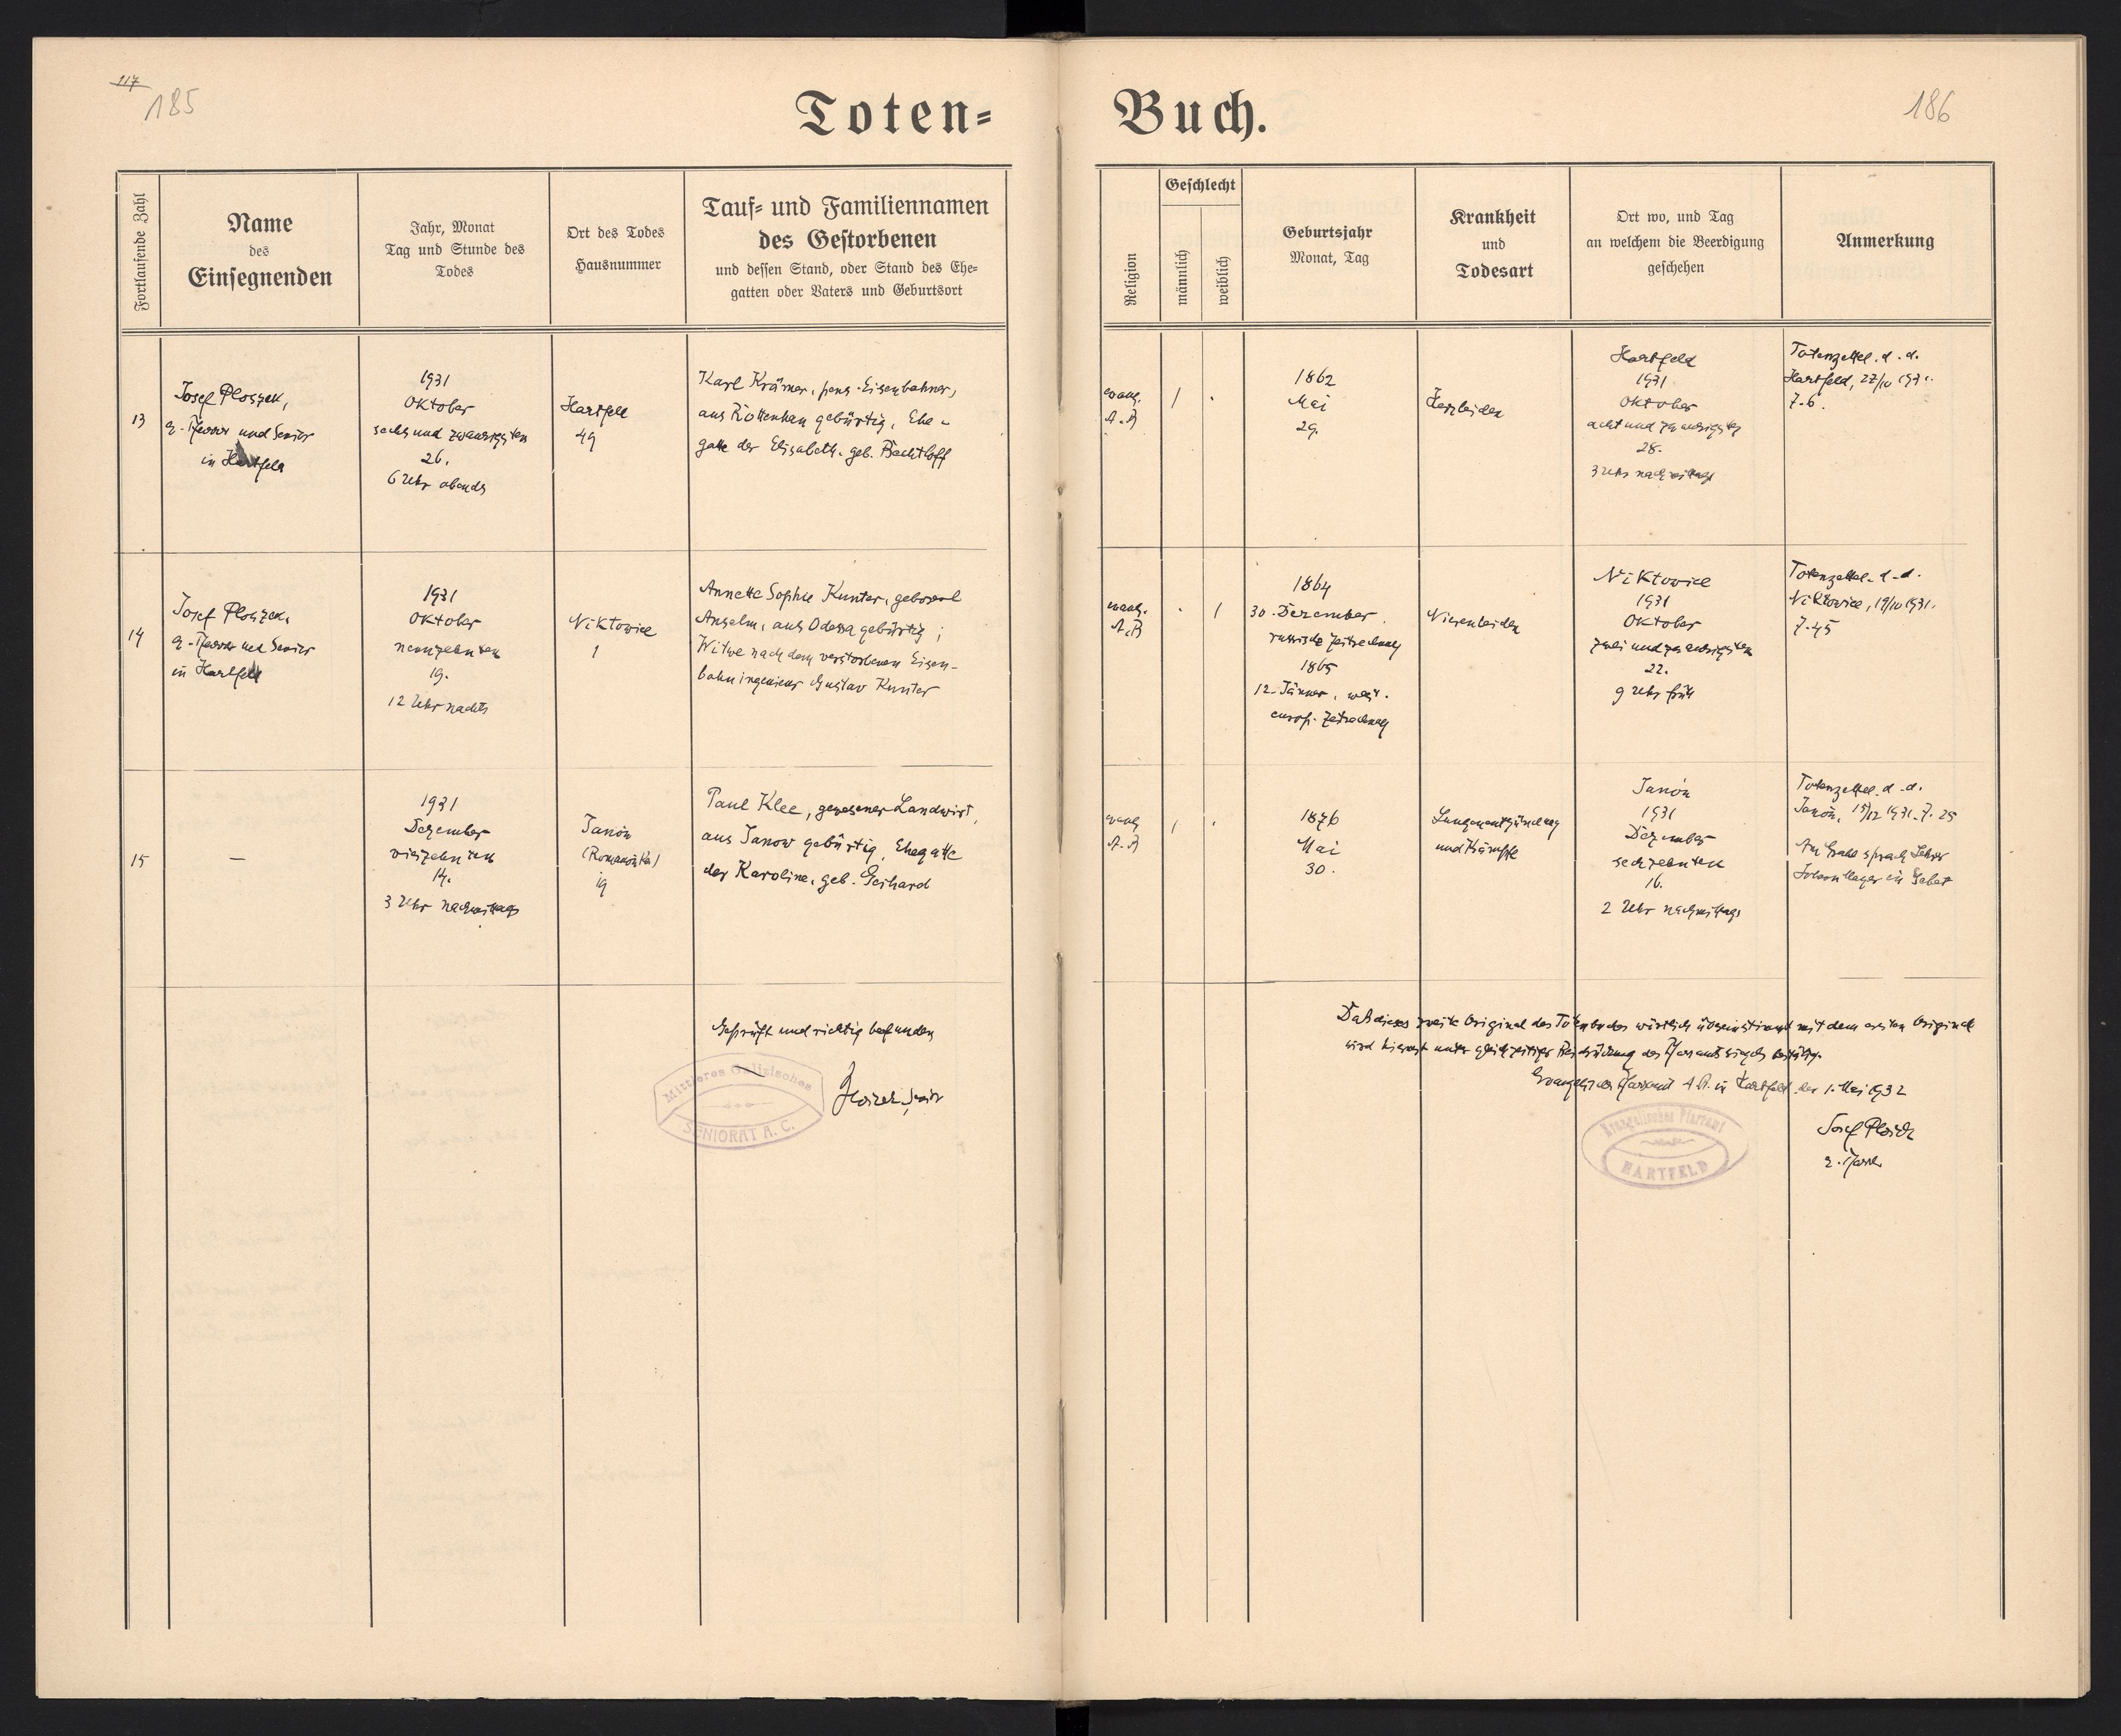 117
185
Toten=
Fortlaufende Zahl
Name
des
Einsegnenden
Jahr, Monat
Tag und Stunde des
Todes
Ort des Todes
Hausnummer
Tauf= und Familiennamen
des Gestorbenen
und dessen Stand, oder Stand des Ehe=
gatten oder Vaters und Geburtsort
13
Josef Ploszek,
e. Pfarrer und Senior
in Hartfeld
1931
Oktober
sechs und zwanzigsten
26.
6 Uhr abends
Hartfeld
49
Karl Krämer, pens. Eisenbahner,
aus Rottenhan gebürtig, Ehe-
gatte der Elisabeth, geb. Bechtloff
14
Josef Ploszek,
e. Pfarrer und Senior
in Hartfeld
1931
Oktober
neunzehnten
19.
12 Uhr nachts
Niktowice
1
Annette Sophie Kunter, geborene
Anselm, aus Odessa gebürtig;
Witwe nach dem verstorbenen Eisen-
bahningenieur Gustav Kunter
15
—
1931
Dezember
vierzehnten
14.
3 Uhr nachmittags
Janów
(Romanówka)
19
Paul Klee, gewesener Landwirt,
aus Janow gebürtig, Ehegatte
der Karoline, geb. Gerhard
Geprüft und richtig befunden
Mittleres Galizisches
SENIORAT A. C.
Senior
Buch.
186
Religion
Geschlecht
männlich
weiblich
Geburtsjahr
Monat, Tag
Krankheit
und
Todesart
Ort wo, und Tag
an welchem die Beerdigung
geschehen
Anmerkung
evang.
A. B.
1
.
1862
Mai
29.
Herzleiden
Hartfeld
1931
Oktober
acht und zwanzigsten
28.
3 Uhr nachmittags
Totenzettel d. d.
Hartfeld, 27/10 1931.
Z. 6.
evang.
A. B.
.
1
1864
30. Dezember
russische Zeitrechnung
1865
12. Jänner, west-
europ. Zeitrechnung
Nierenleiden
Niktowice
1931
Oktober
zwei und zwanzigsten
22.
9 Uhr früh
Totenzettel d. d.
Niktowice, 19/10 1931.
Z. 45
evang
A. B.
1
.
1876
Mai
30.
Lungenentzündung
und Krämpfe
Janów
1931
Dezember
sechzehnten
16.
2 Uhr nachmittags
Totenzettel d. d.
Janów, 15/12 1931. Z. 25
Am Grabe sprach Lehrer
ein Gebet
Daß dieses zweite Original des Totenbuches wörtlich übereinstimmt mit dem ersten Original
wird hiermit unter gleichzeitiger Beidrückung des Pfarramtssiegels bestätigt.
Evangelisches Pfarramt A. B. in Hartfeld, der 1. Mai 1932
Evangelisches Pfarramt
HARTFELD
Josef Ploszek
e. Pfarrer